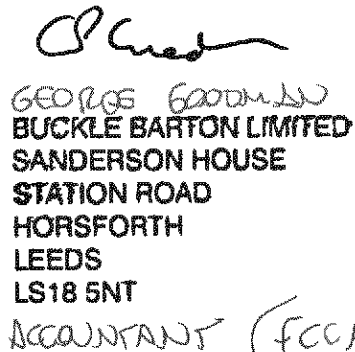 GEORGE GOODMAN
BUCKLE BARTON LIMITED
SANDERSON HOUSE
STATION ROAD
HORSFORTH
LEEDS
LS18 5NT
ACCOUNTANT (FCCA